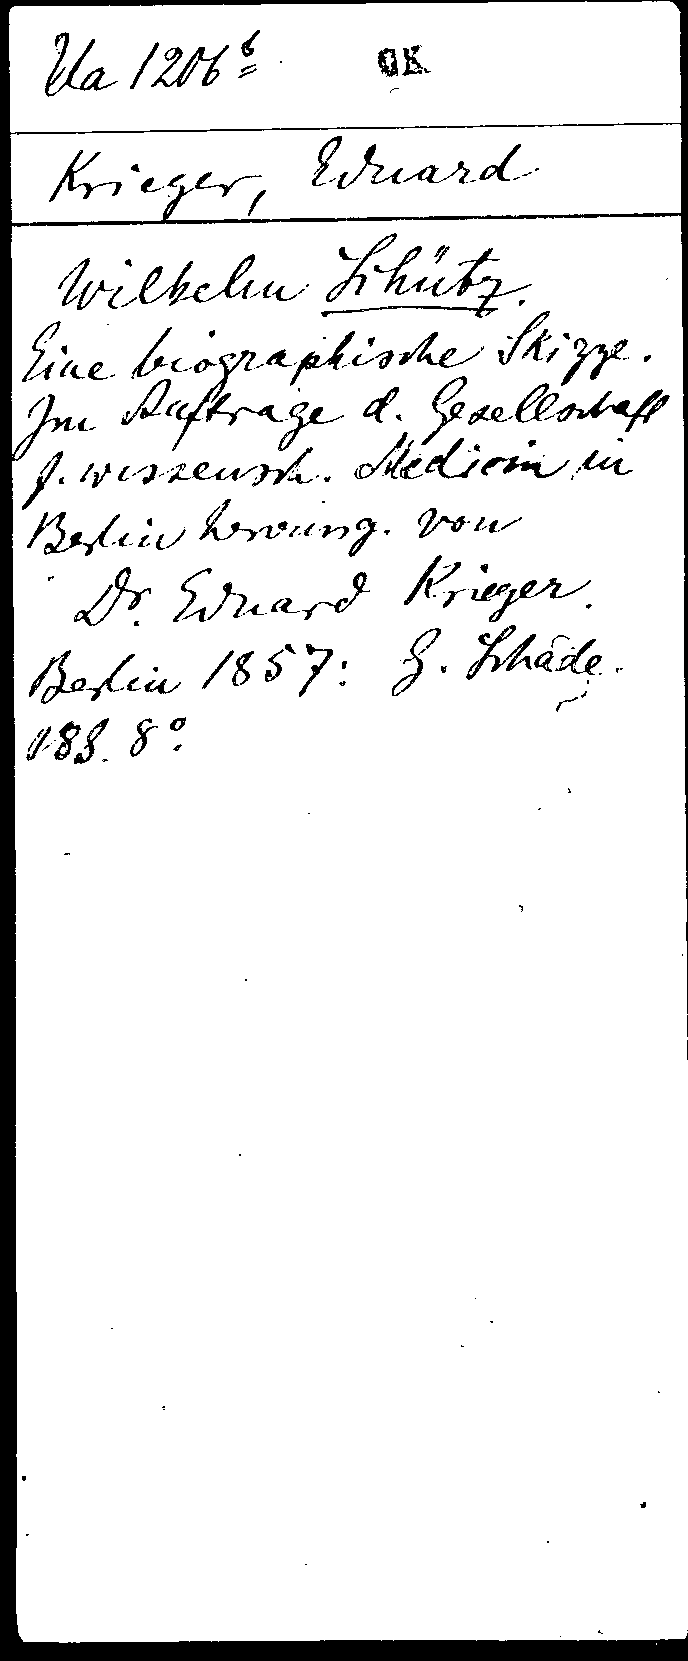 Ua 1206ᵇ OK
Krieger, Eduard
Wilhelm Schütz.
Eine biographische Skizze.
Im Auftrage d. Gesellschaft
f. wissensch. Medicin in
Berlin herausg. von
Dr. Eduard Krieger.
Berlin 1857: G. Schade.
18 S. 8°.